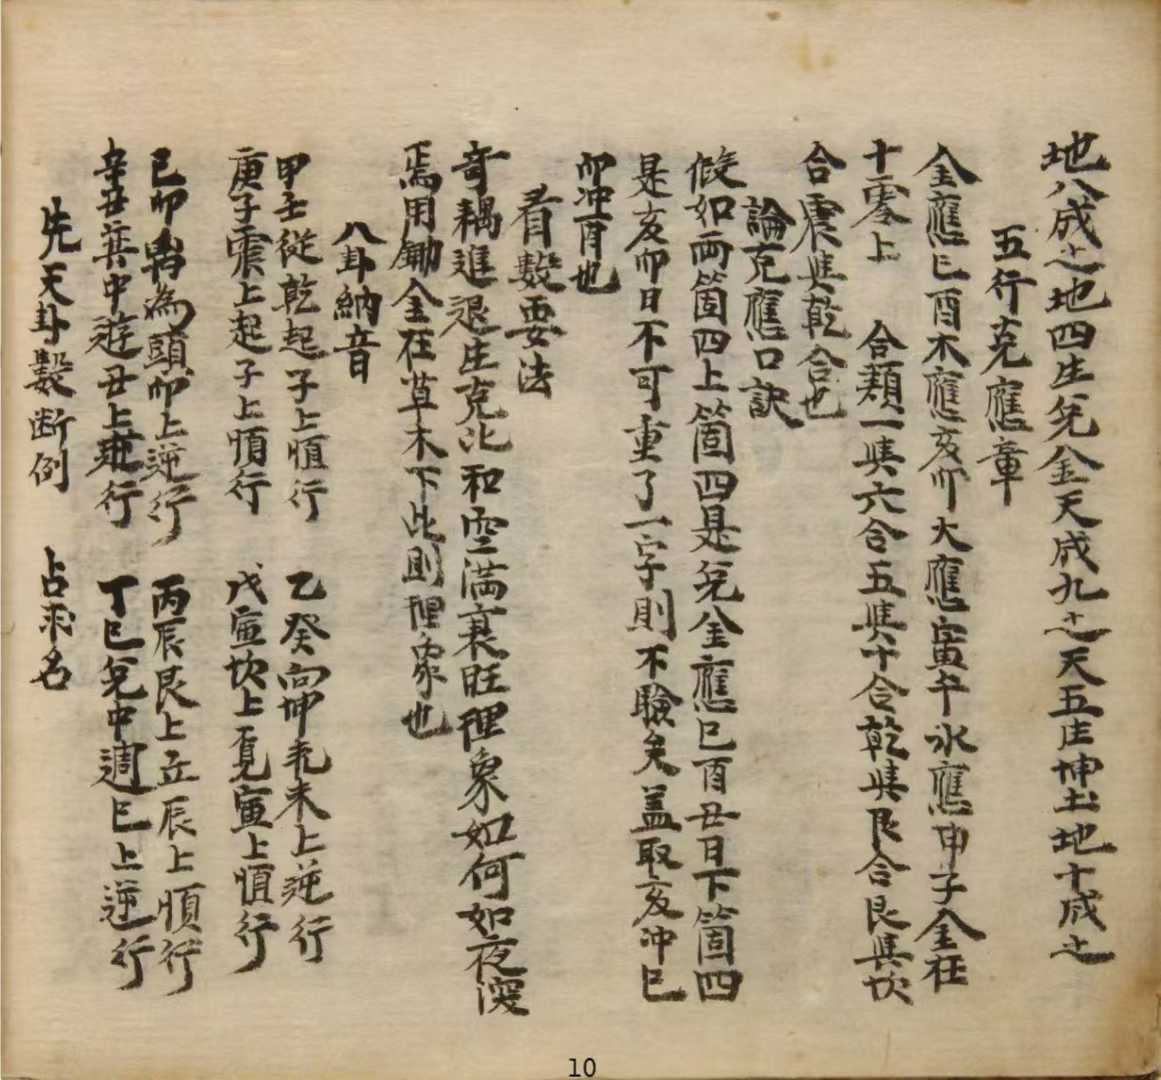 地八成之地四生兌金天成九之天五生坤土地十成之
五行克應章
金應巳酉木應亥卯火應寅午水應申子金在
十零上 合類一與六合五與十合乾與艮合艮與坎
合震與乾合也
論克應口訣
假如兩箇四上箇四是兌金應巳酉丑日下箇四
是亥卯日不可重了一字則不驗矣蓋取亥冲巳
卯冲酉也
看數要法
奇耦進退生克比和空滿衰旺理象如何如夜深
焉用鋤金在草木下此則理象也
八卦納音
甲壬從乾起子上順行 乙癸向坤未上逆行
庚子震上起子上順行 戊寅坎上覓寅上順行
己卯离為頭卯上逆行 丙辰艮上丘辰上順行
辛丑巽中遊丑上逆行 丁巳兌中週巳上逆行
先天卦數断例 占求名
10